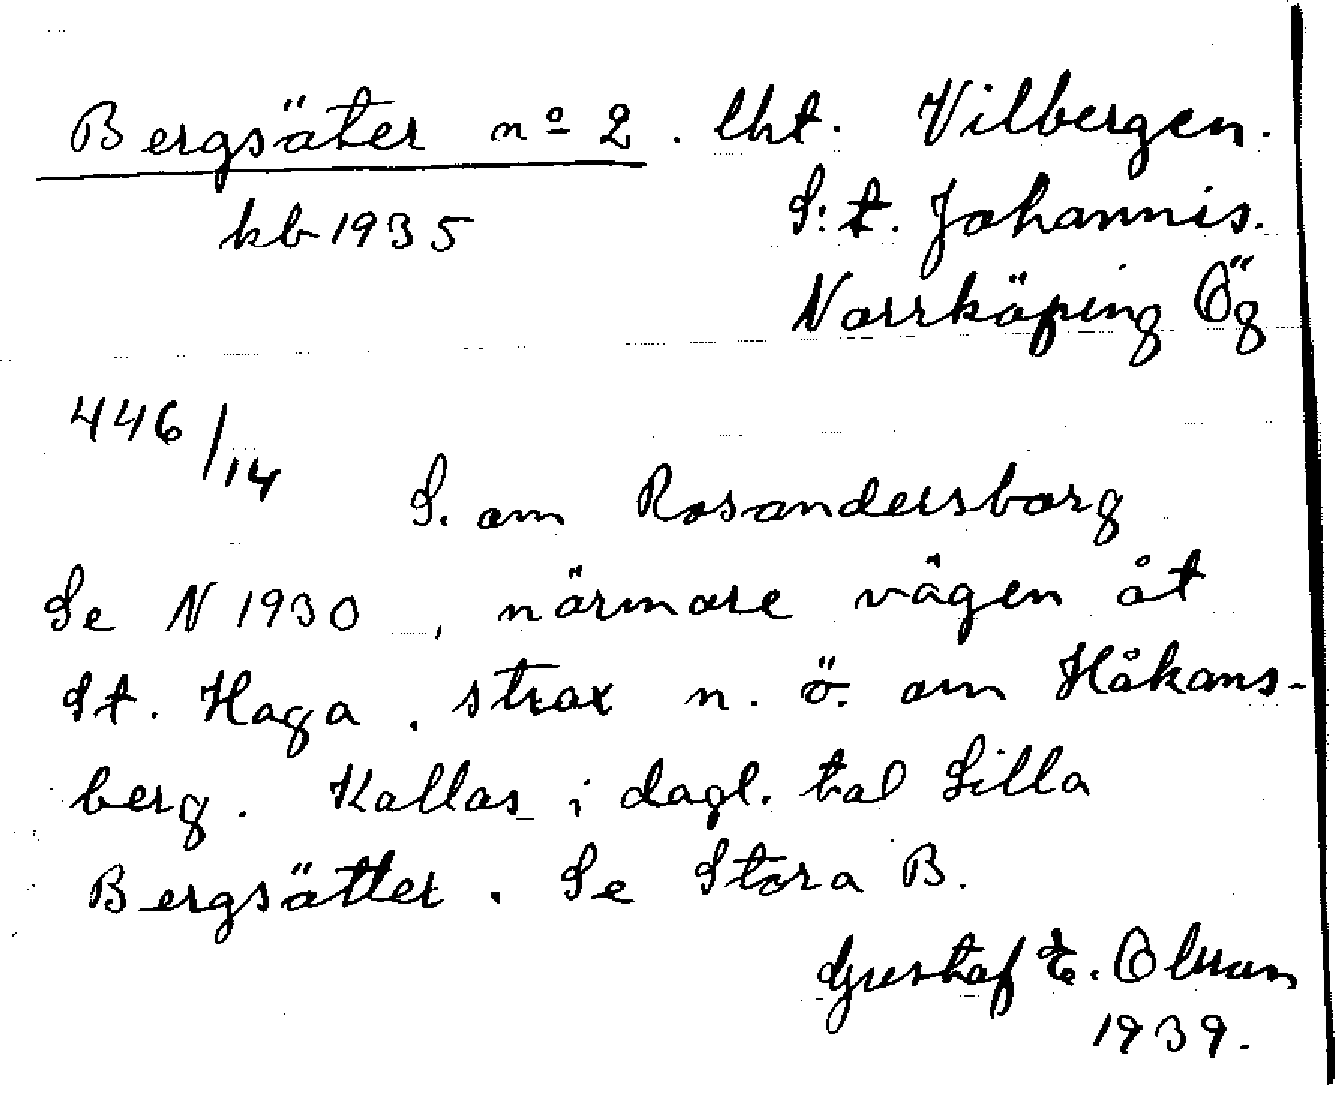 Bergsäter nº 2. lht. Vilbergen.
kb 1935 S:t. Johannis.
Norrköping Ög
446/14
S. om Rosandersborg
Se N 1930, närmare vägen åt
St. Haga, strax n. ö. om Håkans-
berg. Kallas i dagl. tal Lilla
Bergsätter. Se Stora B.
Gustaf E. Olsson
1939.